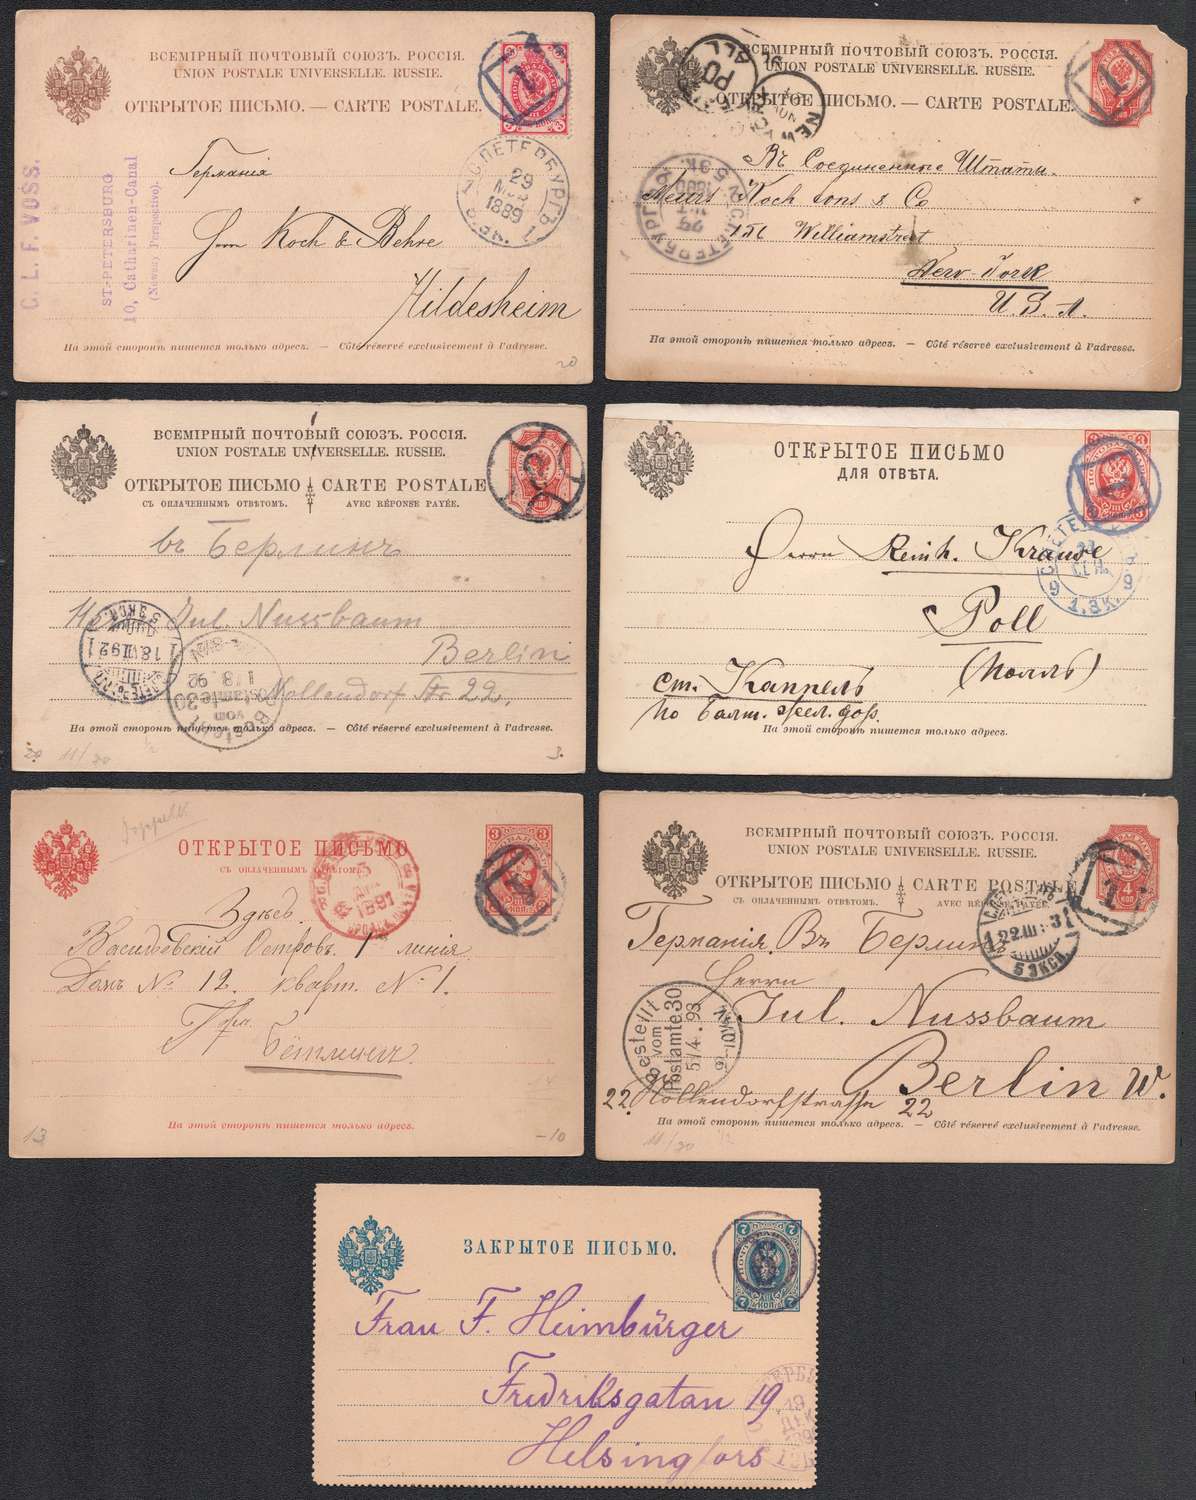 ВСЕМІРНЫЙ ПОЧТОВЫЙ СОЮЗЪ. РОССІЯ.
UNION POSTALE UNIVERSELLE. RUSSIE.
ОТКРЫТОЕ ПИСЬМО. — CARTE POSTALE.
1
С.ПЕТЕРБУРГЪ
29
1889
Германія
Koch & Behre
Hildesheim
C. L. F. VOSS.
ST-PETERSBURG
10, Catharinen-Canal
(Newsky Perspective).
На этой сторонѣ пишется только адресъ. — Côté réservé exclusivement à l'adresse.
20
ВСЕМІРНЫЙ ПОЧТОВЫЙ СОЮЗЪ. РОССІЯ.
UNION POSTALE UNIVERSELLE. RUSSIE.
ОТКРЫТОЕ ПИСЬМО. — CARTE POSTALE.
1
ALL
PO
NEW YORK
Въ Соединенные Штаты.
Messrs Koch Sons & Co
156 Williamstreet
New-York
U. S. A.
С.ПЕТЕРБУРГЪ
5 ЭК.
1889
На этой сторонѣ пишется только адресъ. — Côté réservé exclusivement à l'adresse.
ВСЕМІРНЫЙ ПОЧТОВЫЙ СОЮЗЪ. РОССІЯ.
UNION POSTALE UNIVERSELLE. RUSSIE.
ОТКРЫТОЕ ПИСЬМО CARTE POSTALE
СЪ ОПЛАЧЕННЫМЪ ОТВѢТОМЪ. AVEC RÉPONSE PAYÉE.
въ Берлинъ
Jul. Nussbaum
Berlin
Nollendorf Str 22,
5 ЭКСП.
18.VII.92
Bestellt
vom
Postamte 30
1/8. 92
На этой сторонѣ пишется только адресъ. — Côté réservé exclusivement à l'adresse.
20. 11/20 3.
ОТКРЫТОЕ ПИСЬМО
ДЛЯ ОТВѢТА.
3
23
СЕН.
9 1.ЭК. 9
Herrn Reinh. Krause
Poll
(Полль)
ст. Каппель
по Балт. жел. дор.
На этой сторонѣ пишется только адресъ.
ОТКРЫТОЕ ПИСЬМО
СЪ ОПЛАЧЕННЫМЪ ОТВѢТОМЪ.
3 3
1891
Здѣсь.
Васильевскій Островъ 1 линія
Домъ № 12. кварт. № 1.
Бётлингъ
На этой сторонѣ пишется только адресъ.
13 -10
14
ВСЕМІРНЫЙ ПОЧТОВЫЙ СОЮЗЪ. РОССІЯ.
UNION POSTALE UNIVERSELLE. RUSSIE.
ОТКРЫТОЕ ПИСЬМО CARTE POSTALE
СЪ ОПЛАЧЕННЫМЪ ОТВѢТОМЪ. AVEC RÉPONSE PAYÉE.
4
КОП
22.III
5 ЭКСП.
Германія. Въ Берлинъ
Herrn
Jul. Nussbaum
Berlin W.
22. Nollendorfstrasse 22
Bestellt
vom
Postamte 30
5/4. 93
На этой сторонѣ пишется только адресъ. — Côté réservé exclusivement à l'adresse.
11/20
ЗАКРЫТОЕ ПИСЬМО.
7 7
7 КОП 7
Frau F. Heimbürger
Fredriksgatan 19
Helsingfors
19
ДЕК